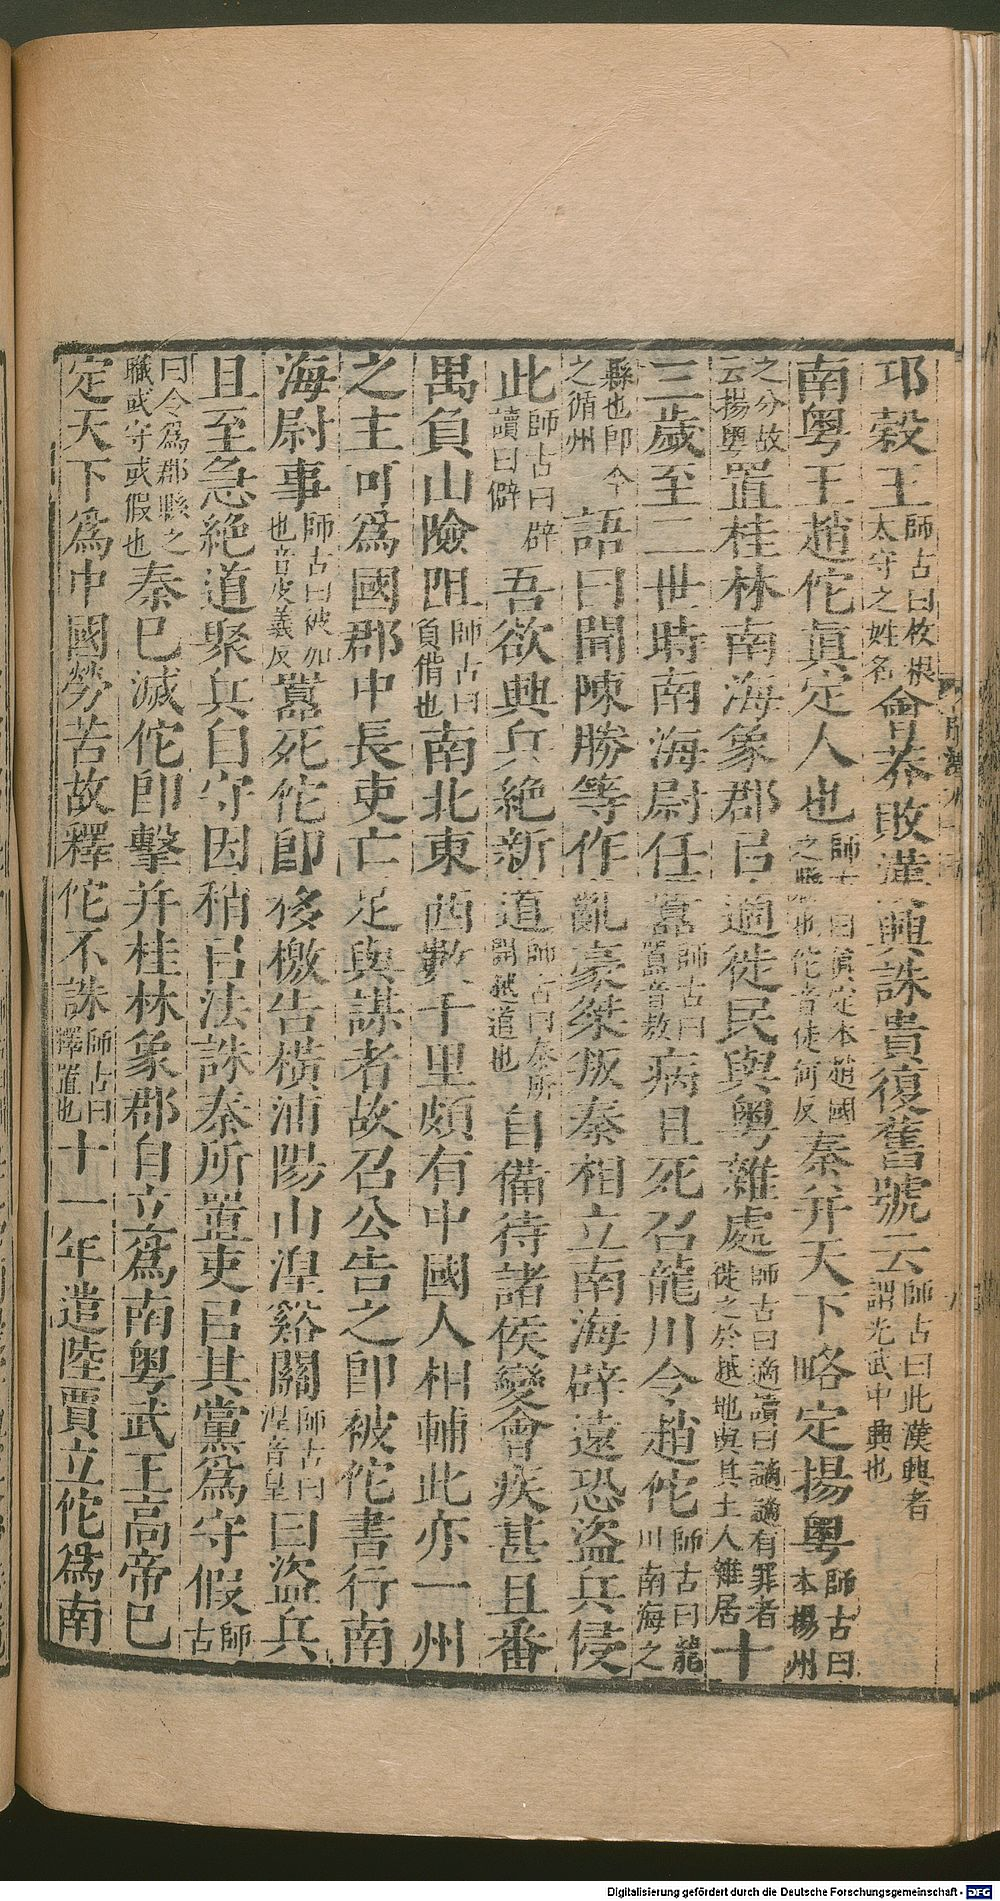 邛穀王師古曰枚根太守之姓名會莽敗漢興誅貴復舊號云師古曰此漢興者謂光武中興也
南粤王趙佗眞定人也師古曰眞定本趙國之縣也佗音徒何反秦并天下略定揚粤師古曰本揚州
之分故云揚粤置桂林南海象郡㠯適徙民與粤雜處師古曰適讀曰謫謫有罪者徙之於越地與其土人雜居十
三歲至二世時南海尉任囂師古曰囂音敖病且死召龍川令趙佗師古曰龍川南海之
縣也卽今之循州語曰聞陳勝等作亂豪桀叛秦相立南海辟遠恐盜兵侵
此師古曰辟讀曰僻吾欲興兵絶新道師古曰秦所開越道也自備待諸侯變會疾甚且番
禺負山險阻師古曰負偝也南北東西數千里頗有中國人相輔此亦一州
之主可爲國郡中長吏亡足與謀者故召公告之卽被佗書行南
海尉事師古曰被加也音皮義反囂死佗卽移檄告橫浦陽山湟谿關師古曰湟音皇曰盜兵
且至急絶道聚兵自守因稍㠯法誅秦所置吏㠯其黨爲守假師古
曰令爲郡縣之職或守或假也秦已滅佗卽擊并桂林象郡自立爲南粤武王高帝已
定天下爲中國勞苦故釋佗不誅師古曰釋置也十一年遣陸賈立佗爲南
Digitalisierung gefördert durch die Deutsche Forschungsgemeinschaft - DFG